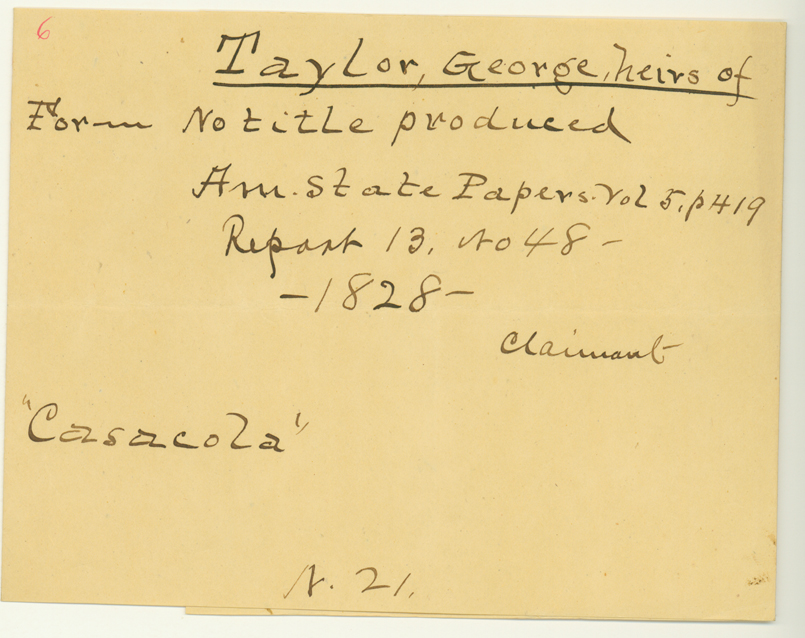 6
Taylor, George, heirs of
Form No title produced
Am. State Papers. Vol 5, p 419
Report 13, No 48 -
- 1828 -
Claimant
"Casacola"
N. 21.